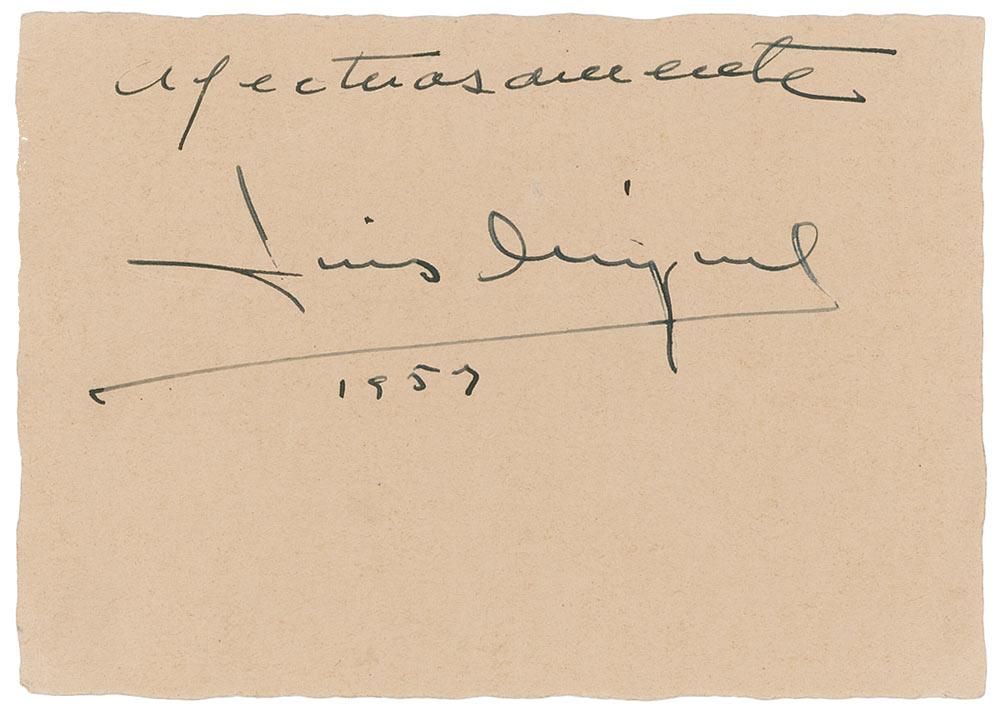 afectuosamente
Luis Miguel
1957